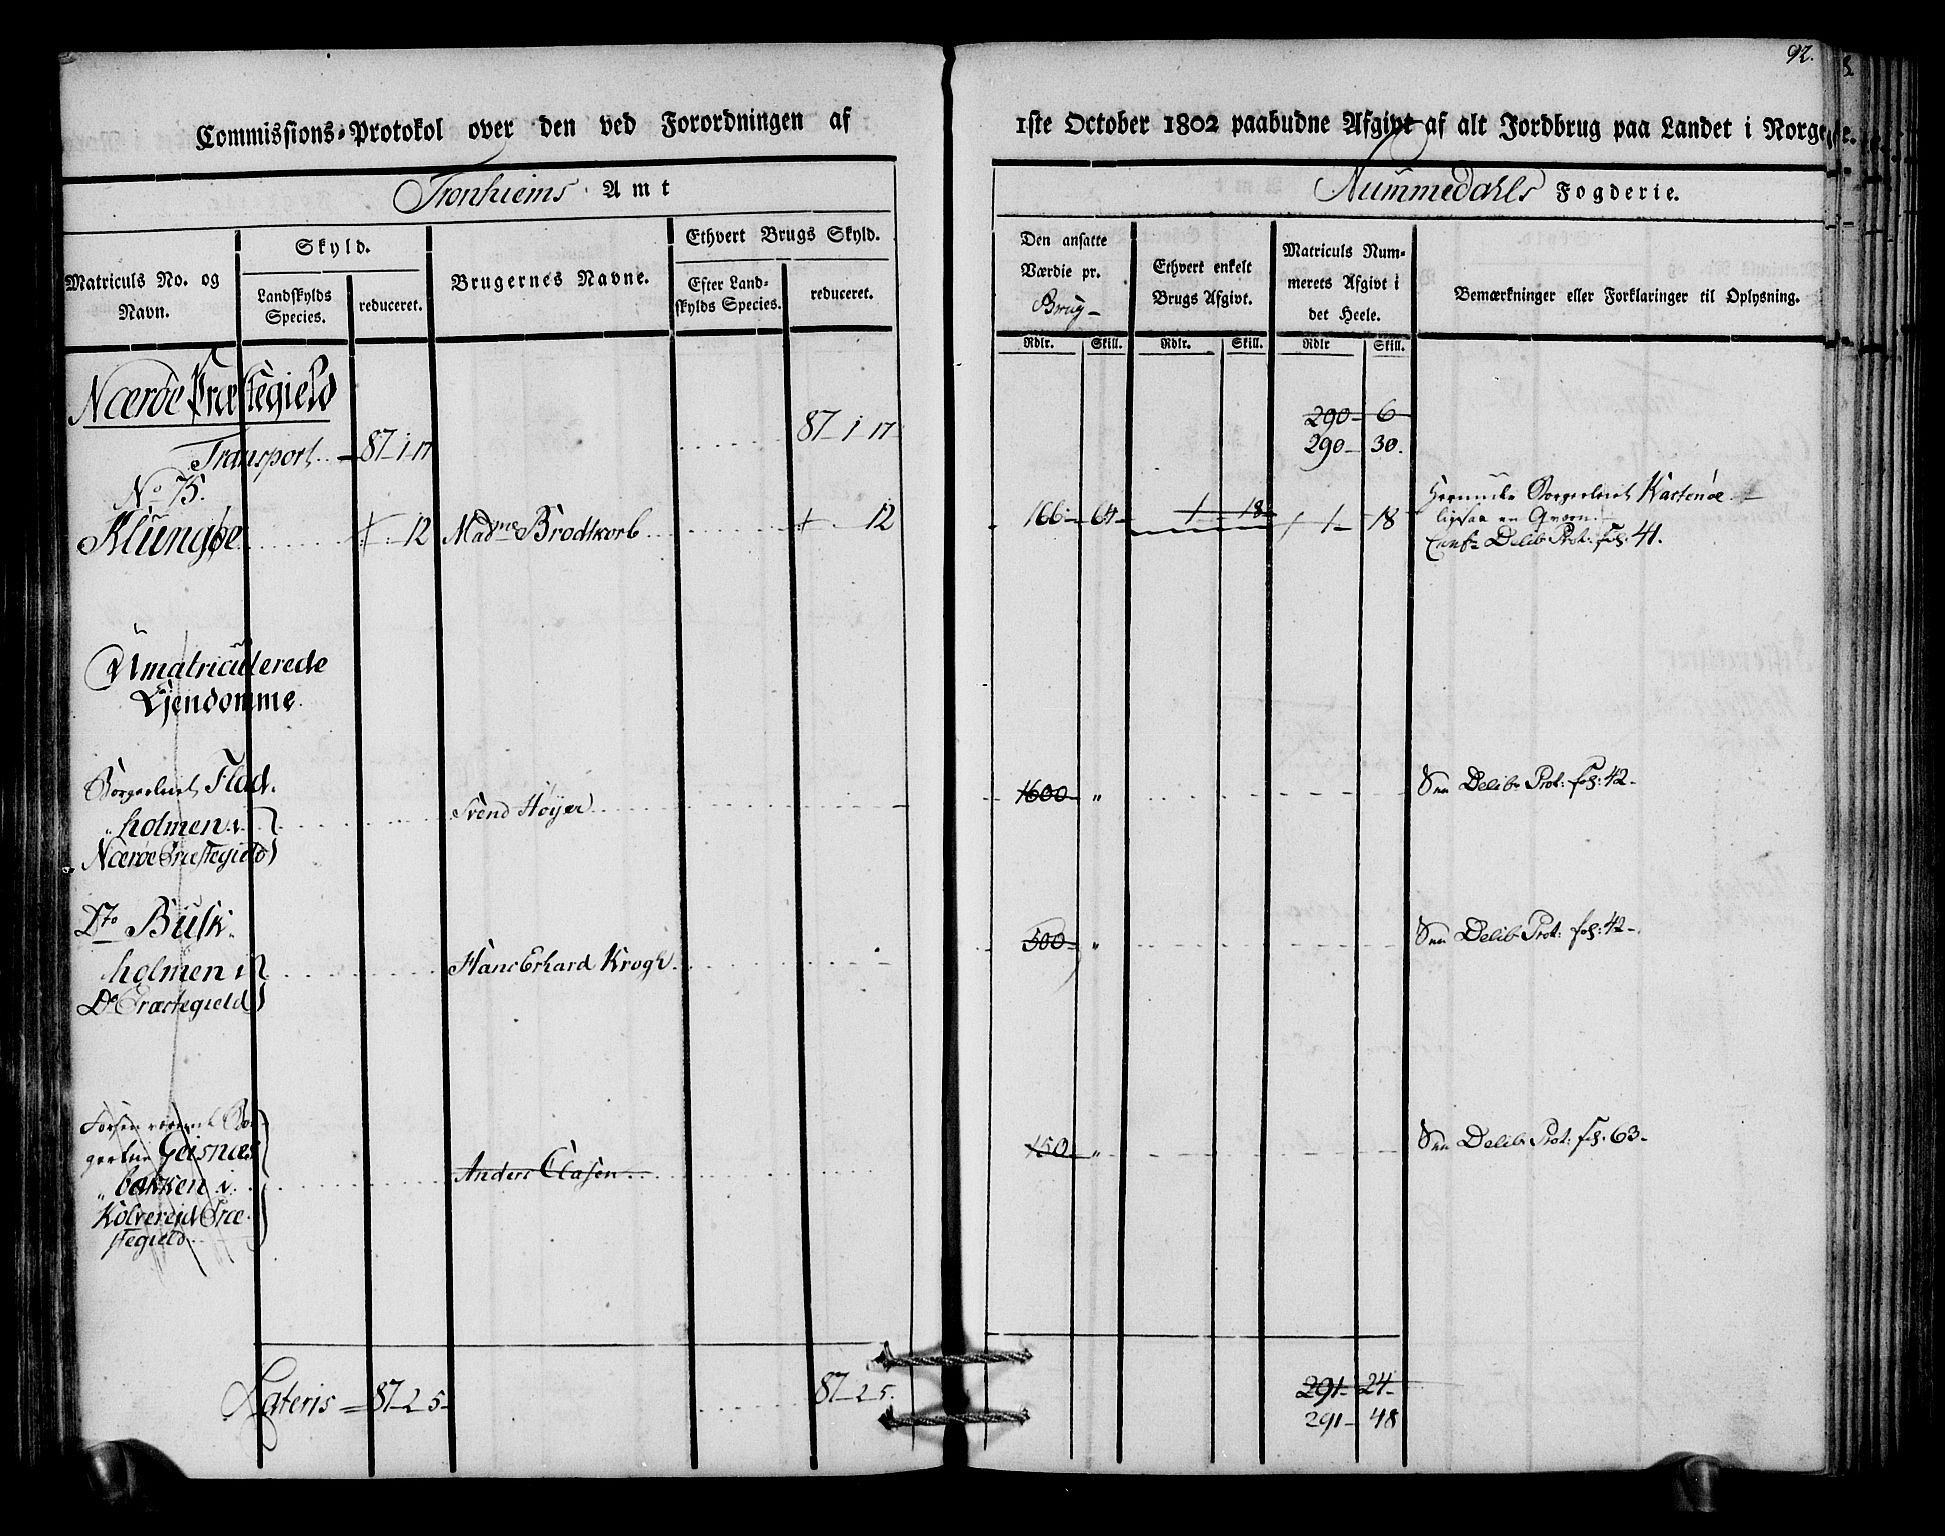 92.
Commissions-Protokol over den ved Forordningen af 1ste October 1802 paabudne Afgivt af alt Jordbrug paa Landet i Norge.
Tronhiems Amt
Nummedahls Fogderie.
Matriculs No. og Navn.
Skyld.
Landskylds Species.
reduceret.
Brugernes Navne.
Ethvert Brugs Skyld.
Efter Landskylds Species.
reduceret.
Den ansatte Værdie pr. Brug
Ethvert enkelt Brugs Afgivt.
Matriculs Nummerets Afgivt i det Heele.
Bemærkninger eller Forklaringer til Oplysning.
Rdlr. Skill. Rdlr. Skill. Rdlr Skill.
Nærøe Præstegield
290 - 6
Transport - 87-1-17 87-1-17 290 - 30.
No 75.
Klungøe 12 Madme Brodtkorb 12 166 - 64 1 - 18 1 - 18
Borgerleiet Kastenøe
ligesaa en Qværn
Confr Delib Prot: fol: 41.
Umatriculerede
Ejendomme
Borgerleiet Flad-
holmen i
Nærøe Præstegield
Svend Höyer 1600 "
See Delib Prot: fol: 42-
Dto Busk-
holmen i
Do Præstegield
Hans Erhard Krogh 500 "
See Delib Prot: fol: 42-
Geisnæs
bakken i
Kolvereid Præ-
stegield
Anders Clasen 150 "
See Delib Prot: fol: 63-
291 - 24
Lateris = 87-2-5- 87-2-5. 291 - 48